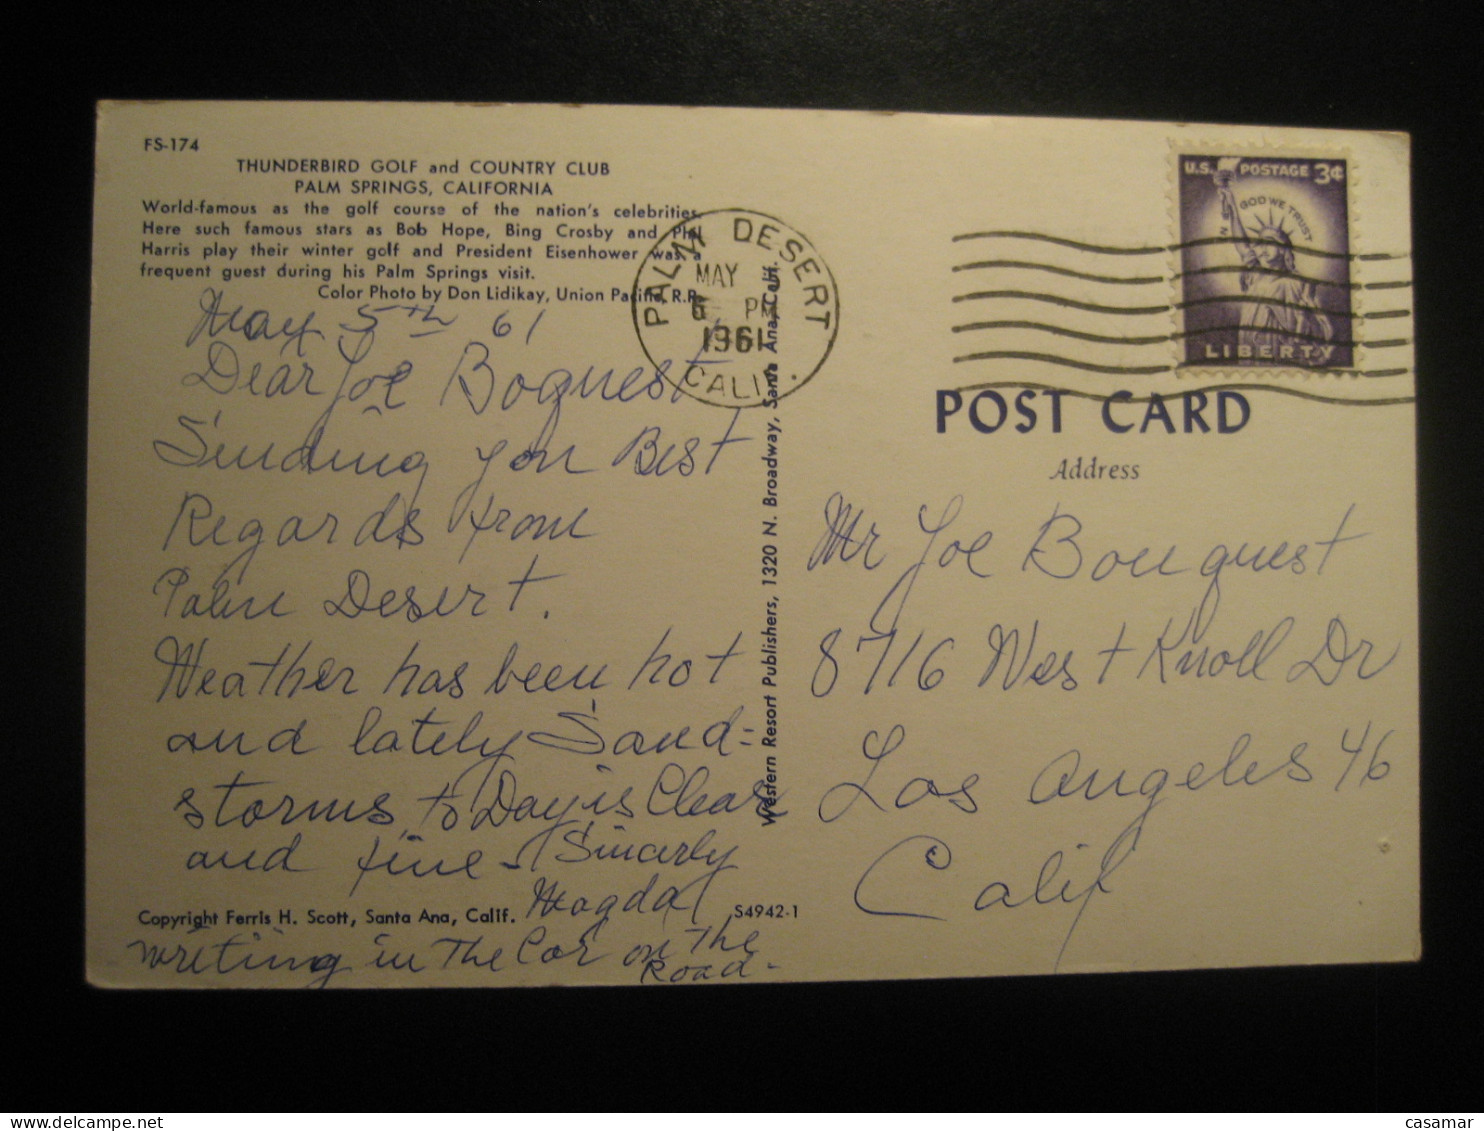 FS-174
THUNDERBIRD GOLF and COUNTRY CLUB
PALM SPRINGS, CALIFORNIA
World-famous as the golf course of the nation's celebrities.
Here such famous stars as Bob Hope, Bing Crosby and Phil
Harris play their winter golf and President Eisenhower was a
frequent guest during his Palm Springs visit.
Color Photo by Don Lidikay, Union Pacific, R.R.
May 5th 61
Dear Joe Boquest,
Sending you Best
Regards from
Palm Desert.
Weather has been hot
and lately Sand=
storms, to Day is Clear
and fine - Sincerly
Magda
Copyright Ferris H. Scott, Santa Ana, Calif.
S4942-1
writing in The Car on The
Road-
Western Resort Publishers, 1320 N. Broadway, Santa Ana, Calif.
PALM DESERT
MAY
PM
1961
CALIF.
U.S. POSTAGE 3¢
IN GOD WE TRUST
LIBERTY
POST CARD
Address
Mr Joe Bouquest
8716 West Knoll Dr
Los Angeles 46
Calif
casamar